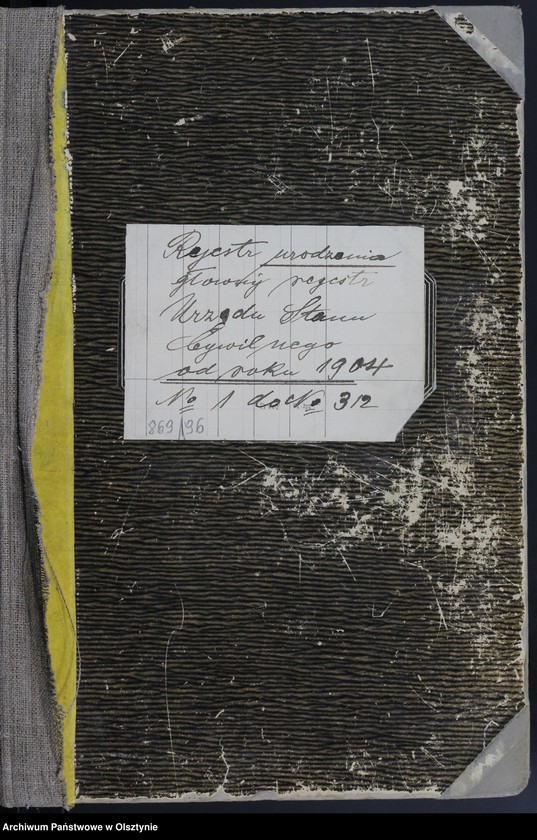 Rejestr urodzenia
głowny rejestr
Urzędu Stanu
Cywilnego
od roku 1904
№ 1 do № 312
869/96
Archiwum Państwowe w Olsztynie